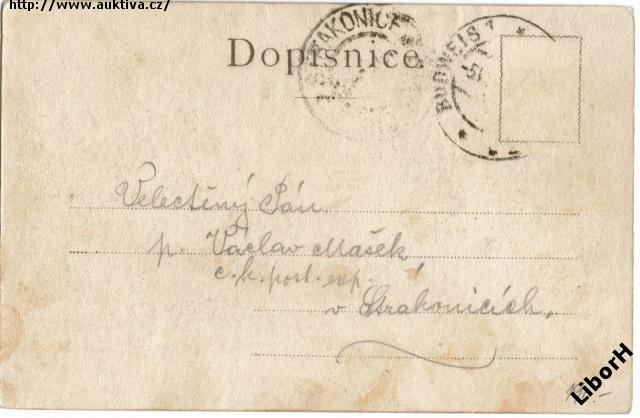 http://www.auktiva.cz/
STRAKONICE
Dopisnice
BUDWEIS 1
Velectěný Pán
p. Václav Mašek,
c. k. post. exp.
v Strakonicích.
LiborH